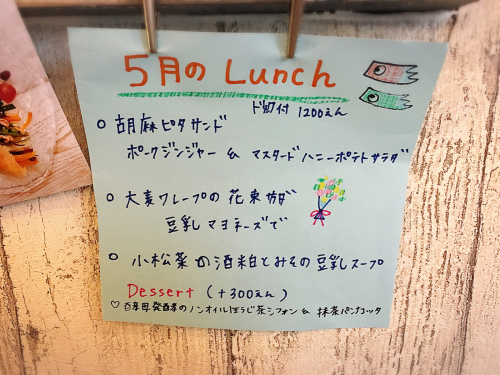 5月のLunch
ド駅付 1200えん
○ 胡麻ピタサンド
ポークジンジャー & マスタードハニーポテトサラダ
○ 大麦クレープの花束サラダ
豆乳マヨネーズで
○ 小松菜の酒粕とみその豆乳スープ
Dessert (+300えん)
♡ 酵母のノンオイルほうじ茶シフォン & 抹茶パンナコッタ